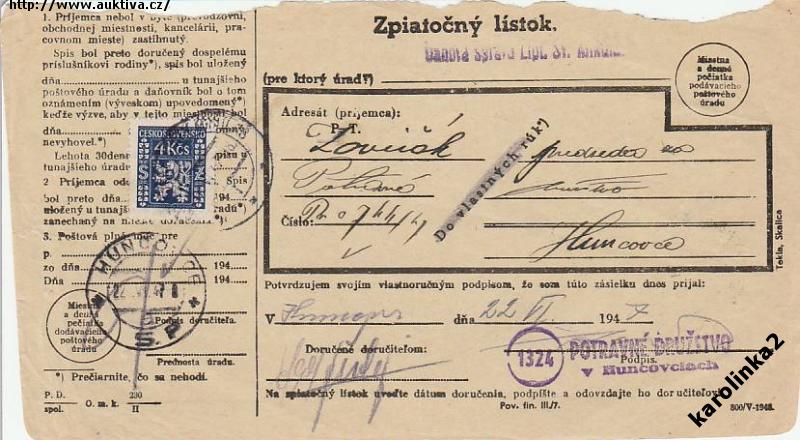 http://www.auktiva.cz/
1. Príjemca nebol v byte (prevodzovni,
obchodnej miestnosti, kancelárii, pra-
covnom mieste) zastihnutý.
Spis bol preto doručený dospelému
príslušníkovi rodiny*), spis bol uložený
dňa u tunajšieho
poštového úradu a daňovník bol o tom
oznámením (výveskom) upovedomený*)
keďže výzve, aby v tejto miestnosti bol
dňa
nevyhovel.*)
Lehota 30denná
tunajšieho
2 Príjemca Spis
bol preto dňa 194
uložený u tunajšieho úradu*)
zanechaný na mieste doručenia*).
3. Poštová plná moc pre
p.
zo dňa 194
Dňa 194
Podpis doručiteľa.
Prednosta úradu.
Miestna
a denná
pečiatka
dodávacieho
poštového
úradu
*) Prečiarnite, čo sa nehodí.
P. D. 230
spol. O. m. k. II
ČESKOSLOVENSKO
4 Kčs
S N
HUNCOVCE
Zpiatočný lístok.
Daňová správa Lipt. Sv. Mikuláš
(pre ktorý úrad?)
Miestna
a denná
pečiatka
podávacieho
poštového
úradu
Adresát (príjemca):
P. T.
Potravné
Číslo:
Huncovce
Do vlastných rúk*)
Tekla, Skalica
Potvrdzujem svojím vlastnoručným podpisom, že som túto zásielku dnes prijal:
V dňa 22 VI. 1947
Doručené doručiteľom:
Podpis.
1324
POTRAVNÉ DRUŽSTVO
v Huncovciach
Na zpiatočný lístok uveďte dátum doručenia, podpíšte a odovzdajte ho doručiteľovi
Pov. fin. III./7.
800/V-1946.
karolinka2